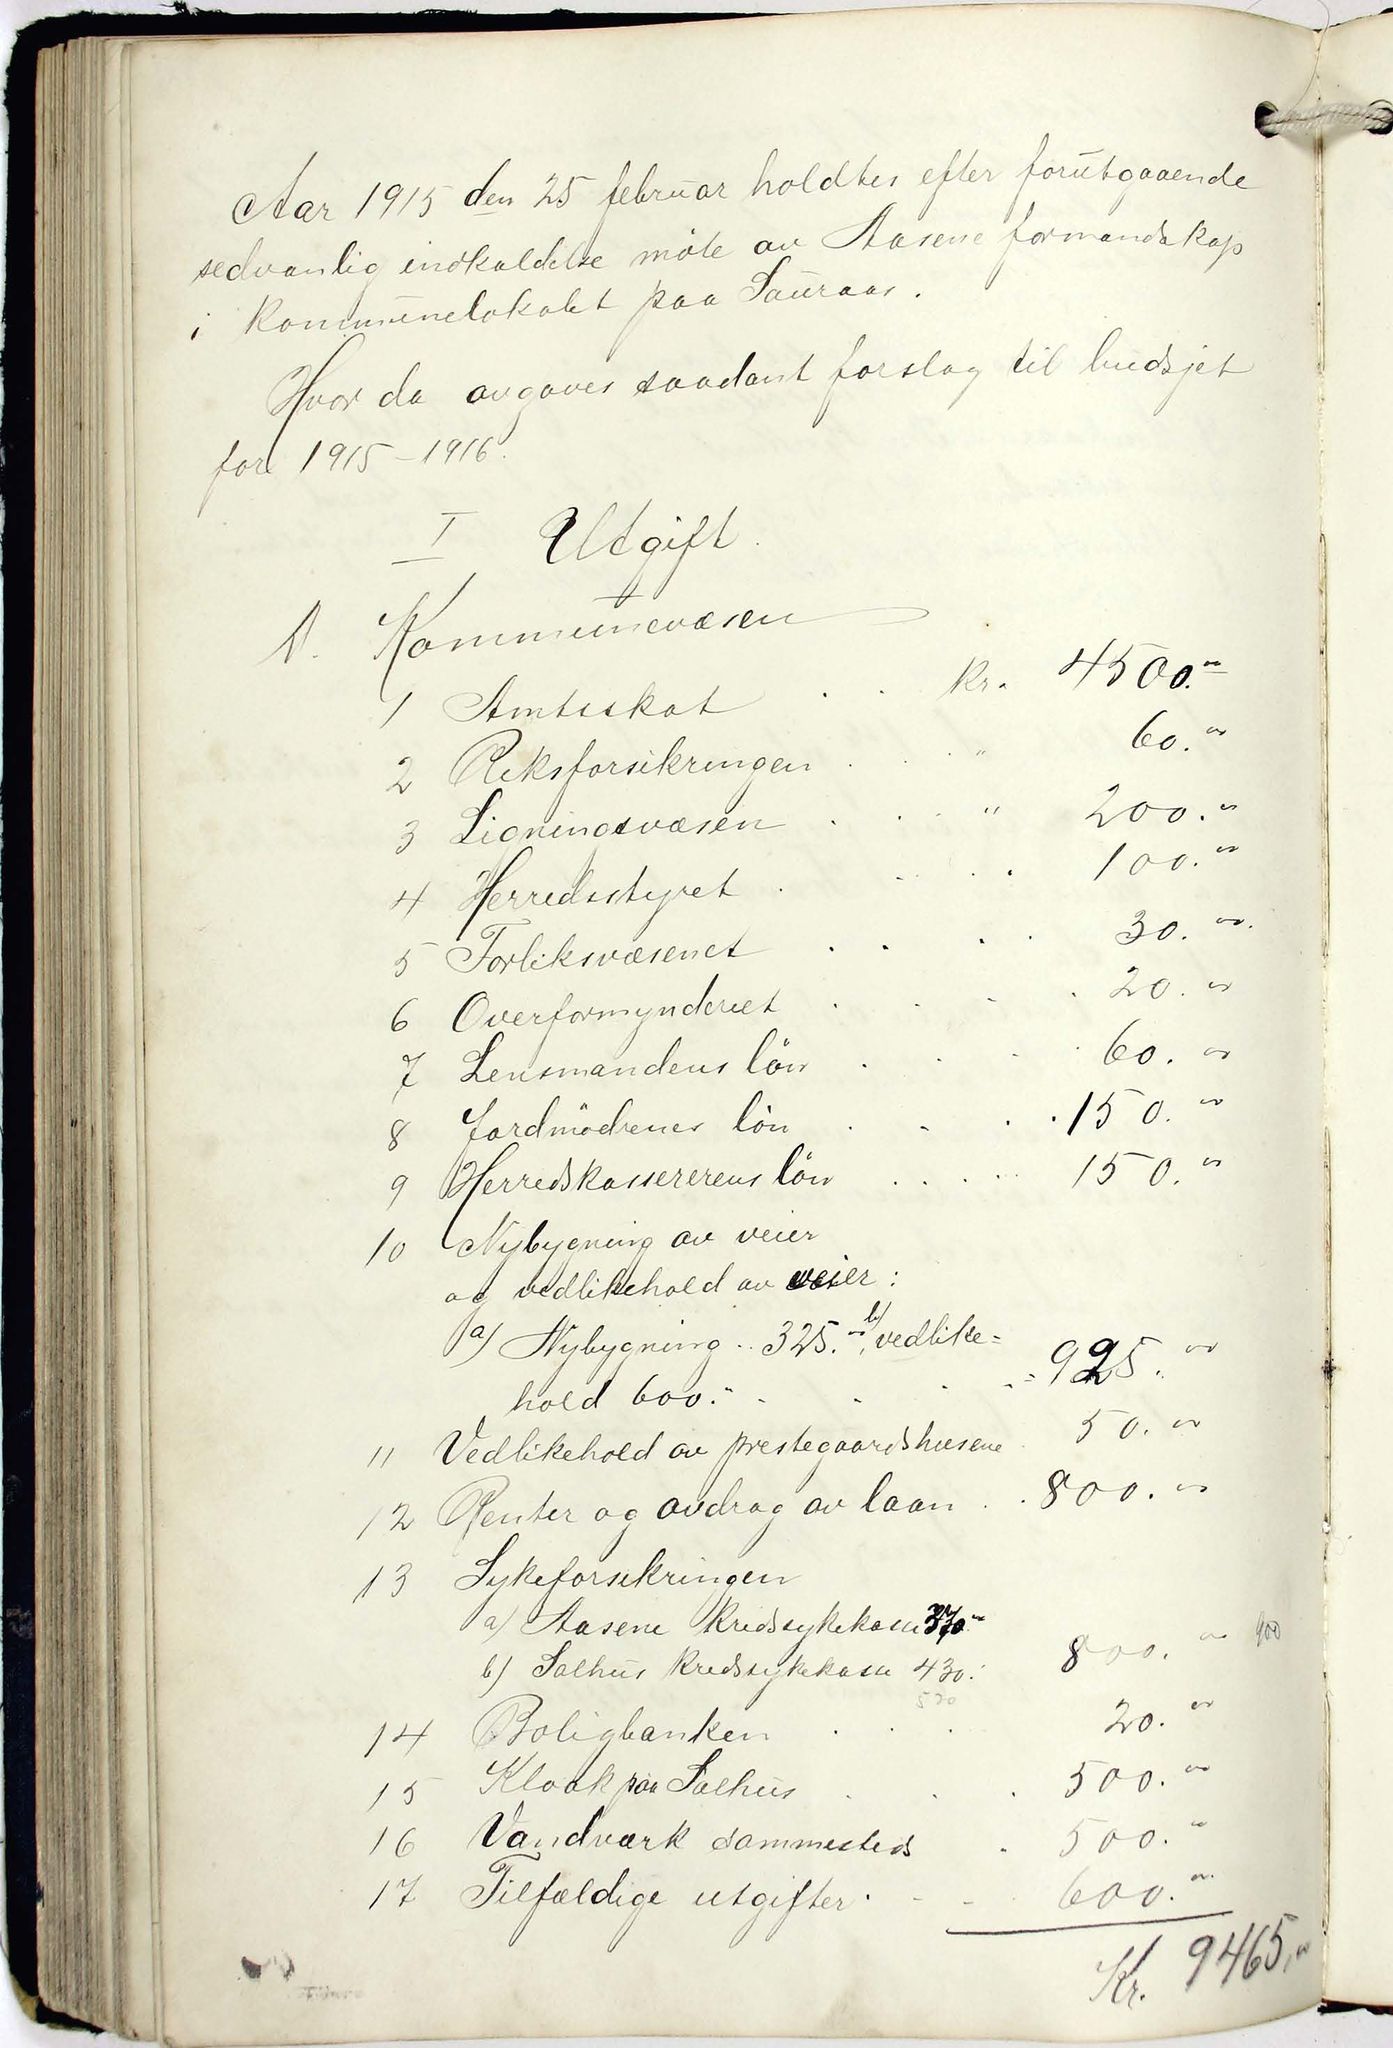 Aar 1915 den 25 februar holdtes efter forutgaaende
sedvanlig indkaldelse möte av Aasene formandskap
i kommunelokalet paa Sauraas.
Hvor da avgaves saadant forslag til budsjet
for 1915-1916.
I Utgift.
A. Kommunevæsen
1 Amtsskat . . Kr. 4500.00
2 Riksforsikringen . . " 60.00
3 Ligningsvæsen . . . " 200.00
4 Herredsstyret . . . . 100.00
5 Forliksvæsenet . . . . 30.00
6 Overformynderiet . . . . 20.00
7 Lensmandens lön . . . . 60.00
8 Jordmödrenes lön . . . . 150.00
9 Herredskassererens lön . . . . 150.00
10 Nybygning av veier
og vedlikehold av veier:
a) Nybygning .. 325.00, b) vedlike=
hold 600.00 . . . . 925.00
11 Vedlikehold av prestegaardshusene 50.00
12 Renter og avdrag av laan . . 800.00
13 Sykeforsikringen
a) Aasene Kredssykekasse 370.00
b) Salhus Kredssykekasse 430.00 800.00 900
520
14 Boligbanken . . . 20.00
15 Kloak paa Salhus . . . 500.00
16 Vandværk sammesteds . 500.00
17 Tilfældige utgifter . . . 600.00
Kr. 9465,00